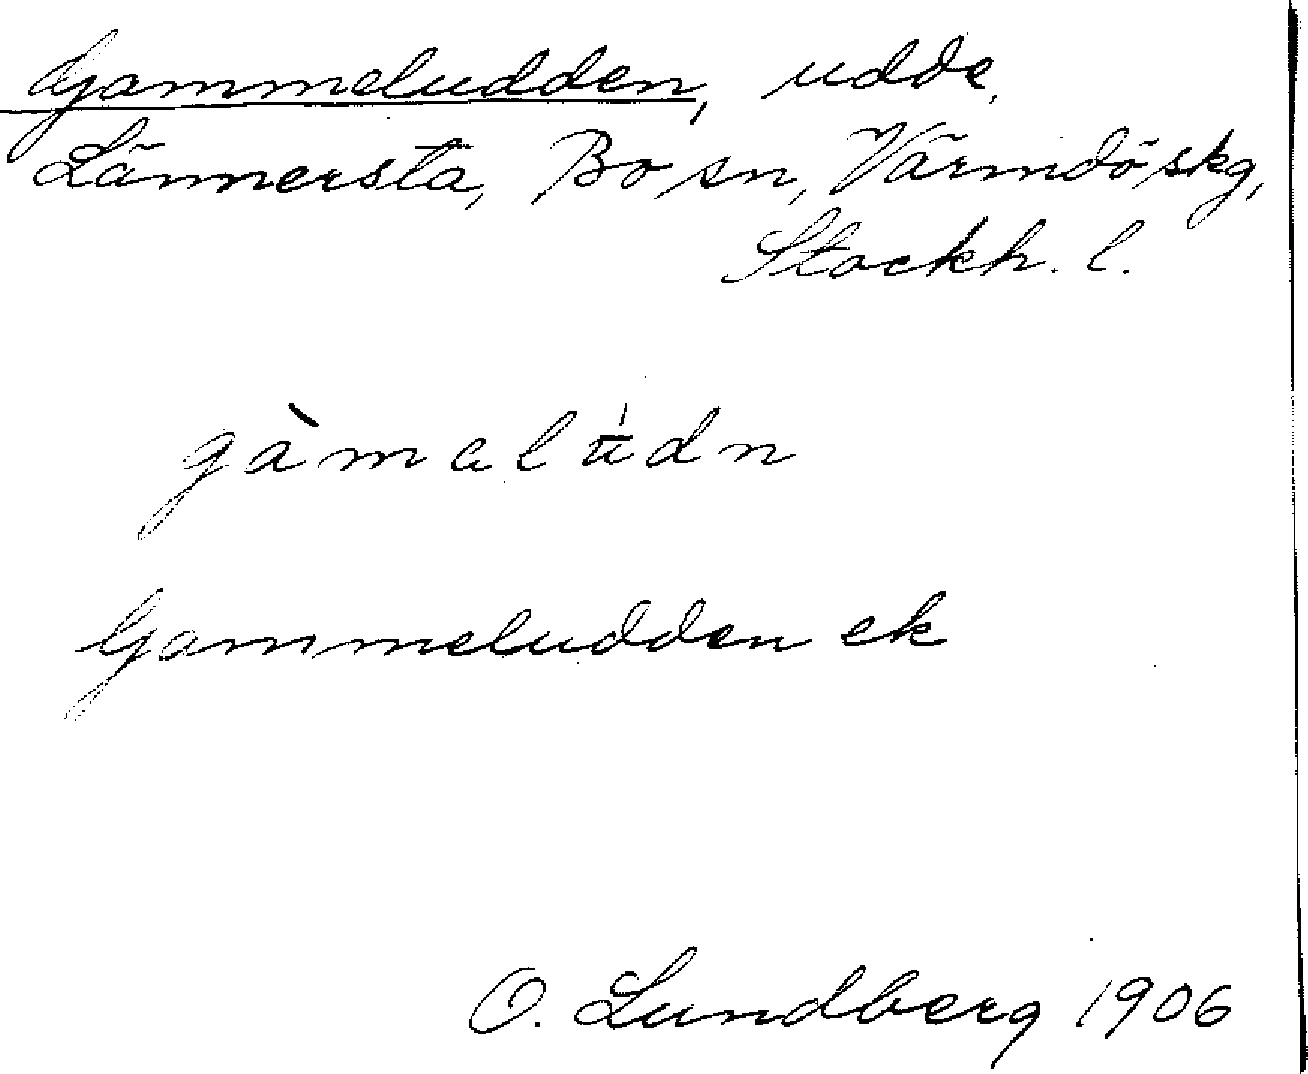 Gammeludden, udde,
Lännersta, Bo sn, Värmdö skg,
Stockh. l.
gàmalu̇dn
Gammeludden ek
O. Lundberg 1906